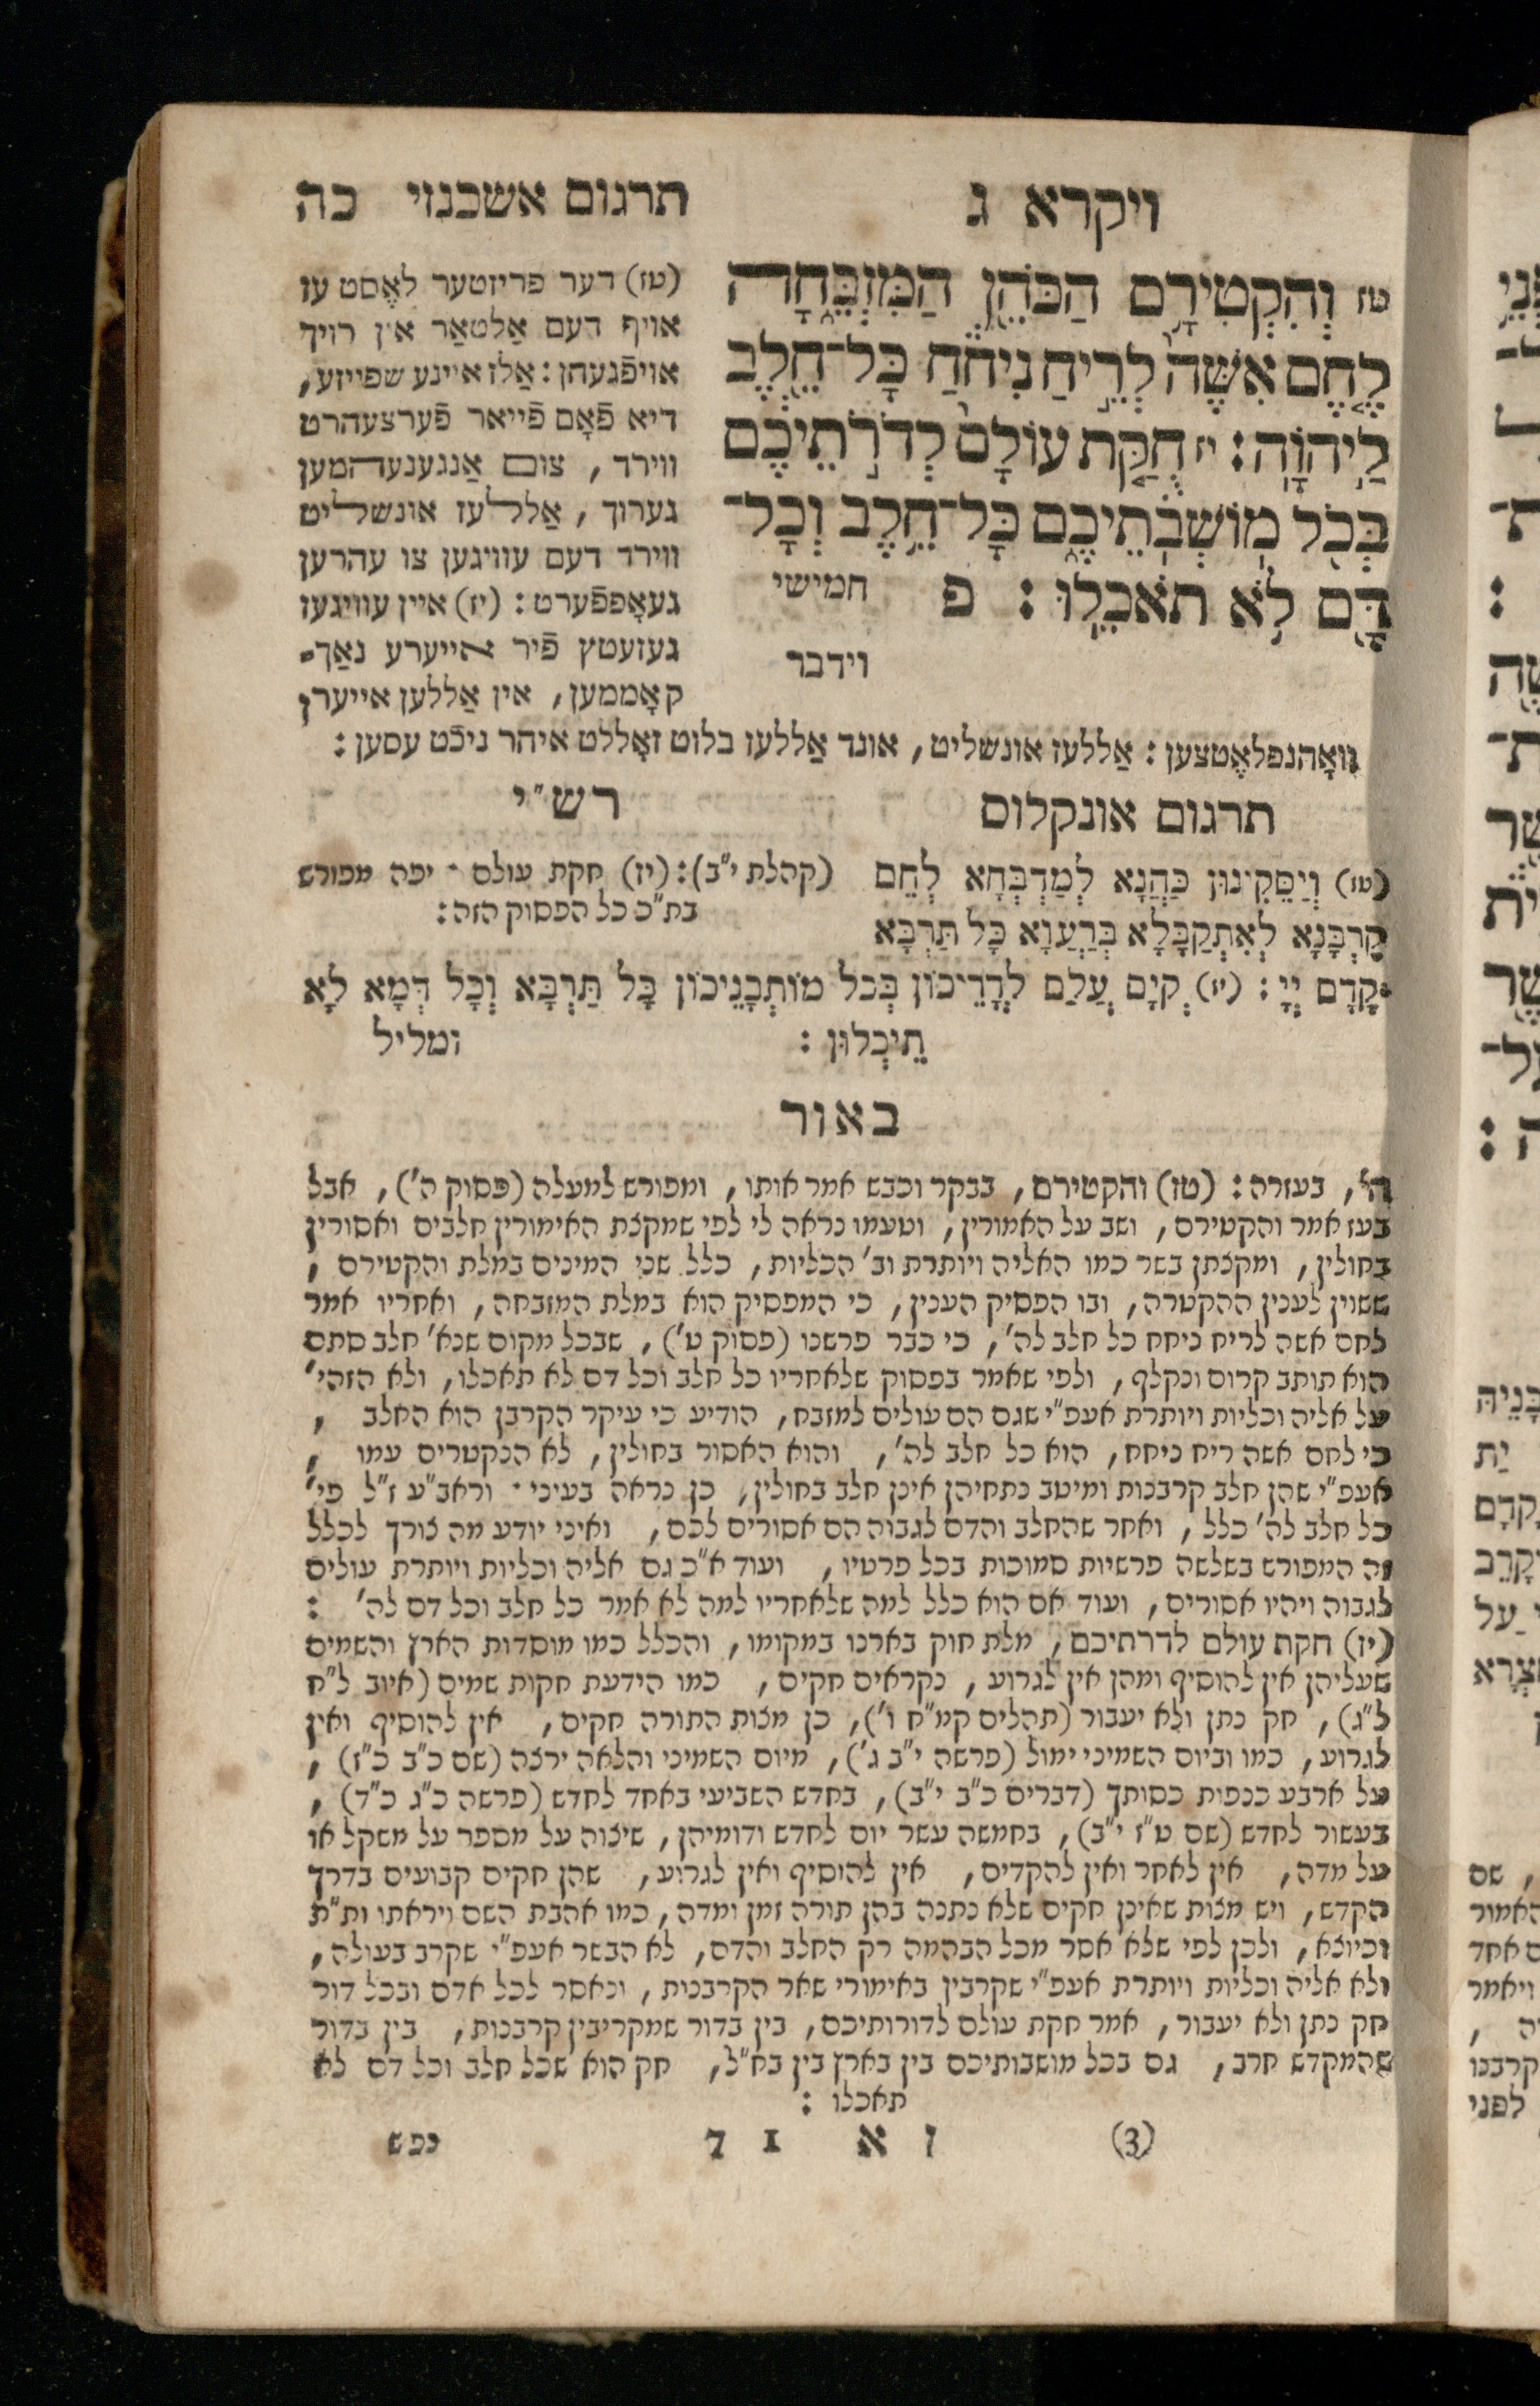 ויקרא ג
תרגום אשכנזי כה
טז וְהִקְטִירָם הַכֹּהֵן הַמִּזְבֵּחָה
לֶחֶם אִשֶּׁה לְרֵיחַ נִיחֹחַ כָּל־חֵלֶב
לַיהוָה: יז חֻקַּת עוֹלָם לְדֹרֹתֵיכֶם
בְּכֹל מוֹשְׁבֹתֵיכֶם כָּל־חֵלֶב וְכָל־
דָּם לֹא תֹאכֵלוּ: פ חמישי
וידבר
(טז) דער פריזטער לאֶסט עז
אויף דעם אַלטאַר אין רויך
אויפֿגעהן: אַלז איינע שפייזע,
דיא פֿאָם פֿייאר פֿערצעהרט
ווירד, צום אַנגענעהמען
גערוך, אַללעז אונשליט
ווירד דעם עוויגען צו עהרען
געאָפפֿערט: (יז) איין עוויגעז
געזעטץ פֿיר אייערע נאַך־
קאָממען, אין אַללען אייערן
וואָהנפלאֶטצען: אַללעז אונשליט, אונד אַללעז בלוט זאָללט איהר ניכֿט עסען:
תרגום אונקלוס
(טז) וְיַסֵּקִינוּן כַּהֲנָא לְמַדְבְּחָא לְחֵם
קָרְבָּנָא לְאִתְקַבָּלָא בְּרַעֲוָא כָּל תַּרְבָּא
קֳדָם יְיָ: (יז) קְיָם עֲלַם לְדָרֵיכוֹן בְּכֹל מוֹתְבָנֵיכוֹן כָּל תַּרְבָּא וְכָל דְּמָא לָא
תֵיכְלוּן: ומליל
רש״י
(קהלת י״ב): (יז) חקת עולם · יפה מפורש
בת״כ כל הפסוק הזה:
באור
ה׳, בעזרה: (טז) והקטירם, בבקר וכבש אמר אותו, ומפורש למעלה (פסוק ה׳), אבל
בעז אמר והקטירם, ושב על האמורין, וטעמו נראה לי לפי שמקצת האימורין חלבים ואסורין
בחולין, ומקצתן בשר כמו האליה ויותרת וב׳ הכליות, כלל שני המינים במלת והקטירם,
ששוין לענין ההקטרה, ובו הפסיק הענין, כי המפסיק הוא במלת המזבחה, ואחריו אמר
לחם אשה לריח ניחח כל חלב לה׳, כי כבר פרשנו (פסוק ט׳), שבכל מקום שנא׳ חלב סתם
הוא תותב קרום ונקלף, ולפי שאמר בפסוק שלאחריו כל חלב וכל דם לא תאכלו, ולא הזהי׳
על אליה וכליות ויותרת אעפ״י שגם הם עולים למזבח, הודיע כי עיקר הקרבן הוא החלב,
כי לחם אשה ריח ניחח, הוא כל חלב לה׳, והוא האסור בחולין, לא הנקטרים עמו,
אעפ״י שהן חלב קרבנות ומיטב נתחיהן אינן חלב בחולין, כן נראה בעיני · וראב״ע ז״ל פי׳
כל חלב לה׳ כלל, ואחר שהחלב והדם לגבוה הם אסורים לכם, ואיני יודע מה צורך לכלל
זה המפורש בשלשה פרשיות סמוכות בכל פרטיו, ועוד א״כ גם אליה וכליות ויותרת עולים
לגבוה ויהיו אסורים, ועוד אם הוא כלל למה שלאחריו למה לא אמר כל חלב וכל דם לה׳:
(יז) חקת עולם לדרתיכם, מלת חוק בארנו במקומו, והכלל כמו מוסדות הארץ והשמים
שעליהן אין להוסיף ומהן אין לגרוע, נקראים חקים, כמו הידעת חקות שמים (איוב ל״ח
ל״ג), חק נתן ולא יעבור (תהלים קמ״ח ו׳), כן מצות התורה חקים, אין להוסיף ואין
לגרוע, כמו וביום השמיני ימול (פרשה י״ב ג׳), מיום השמיני והלאה ירצה (שם כ״ב כ״ז),
על ארבע כנפות כסותך (דברים כ״ב י״ב), בחדש השביעי באחד לחדש (פרשה כ״ג כ״ד),
בעשור לחדש (שם ט״ז י״ב), בחמשה עשר יום לחדש ודומיהן, שיצוה על מספר על משקל או
על מדה, אין לאחר ואין להקדים, אין להוסיף ואין לגרוע, שהן חקים קבועים בדרך
הקדש, ויש מצות שאינן חקים שלא נתנה בהן תורה זמן ומדה, כמו אהבת השם ויראתו ות״ת
וכיוצא, ולכן לפי שלא אסר מכל הבהמה רק החלב והדם, לא הבשר אעפ״י שקרב בעולה,
ולא אליה וכליות ויותרת אעפ״י שקרבין באימורי שאר הקרבנות, ונאסר לכל אדם ובכל דור
חק נתן ולא יעבור, אמר חקת עולם לדורותיכם, בין בדור שמקריבין קרבנות, בין בדור
שהמקדש חרב, גם בכל מושבותיכם בין בארץ בין בח״ל, חק הוא שכל חלב וכל דם לא
תאכלו:
(3) ז א 1 7 נפש